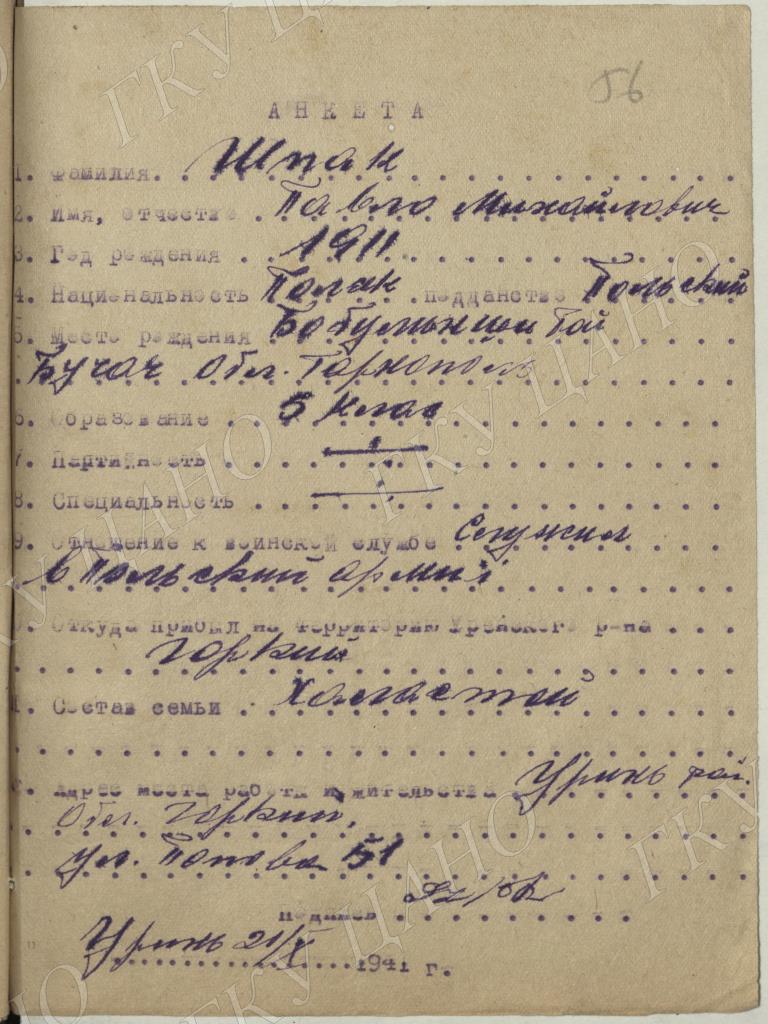 56
АНКЕТА
1. Фамилия. Шпак
2. Имя, отчество. Павло Михайлович
3. Год рождения. 1911
4. Национальность Поляк подданство Польский
5. Место рождения
Бучач Обл. Тарнополь
6. Образование. 5 клас
7. Партийность. —
8. Специальность. —
9. Отношение к воинской службе Служил
в Польский армиі
Откуда прибыл на территорию Уренского р-на
Горкий
11. Состав семьи. Халастой
Адрес места работы и жительства Уринь рай.
Обл. Горкий,
ул. Попова 51
Подпись
Уринь 21/X 1941 г.
ГКУ ЦАНО